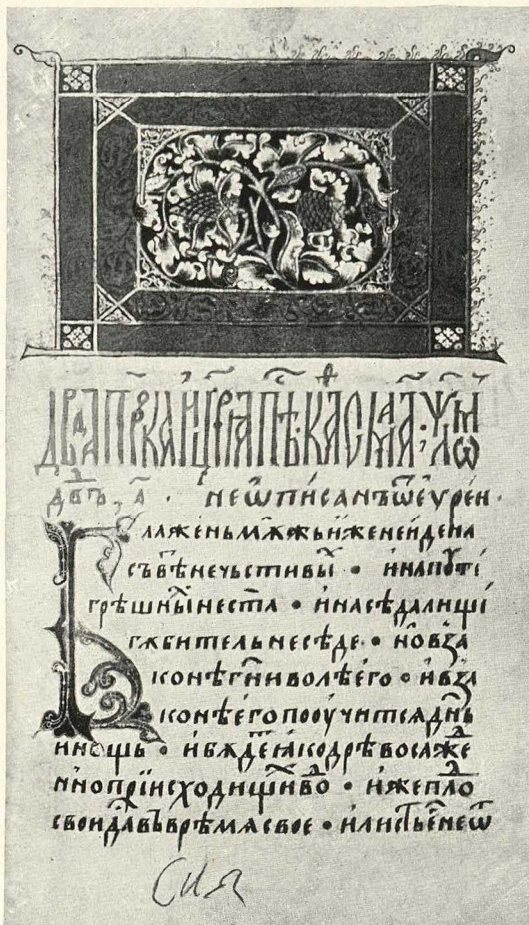 дв҃да прⷪ҇рка и цр҃ѧ пѣ
неѡписанъ ѿ еѵреи
Блаженъ мѫжь иже не иде на
съвѣ нечьстивы • и на пꙋти
грѣшны не ста • и на сѣдалищі
гѫбитель не сѣде • но въ за
конѣ гн҃и волѣ его • и въ за
конѣ его поѹчитсѧ дн҃ь
и нощь • и бѫде ꙗко дрѣво саже
нно при исходищи во • иже пло
свои да въ врѣмѧ свое • и листь е не ѿ